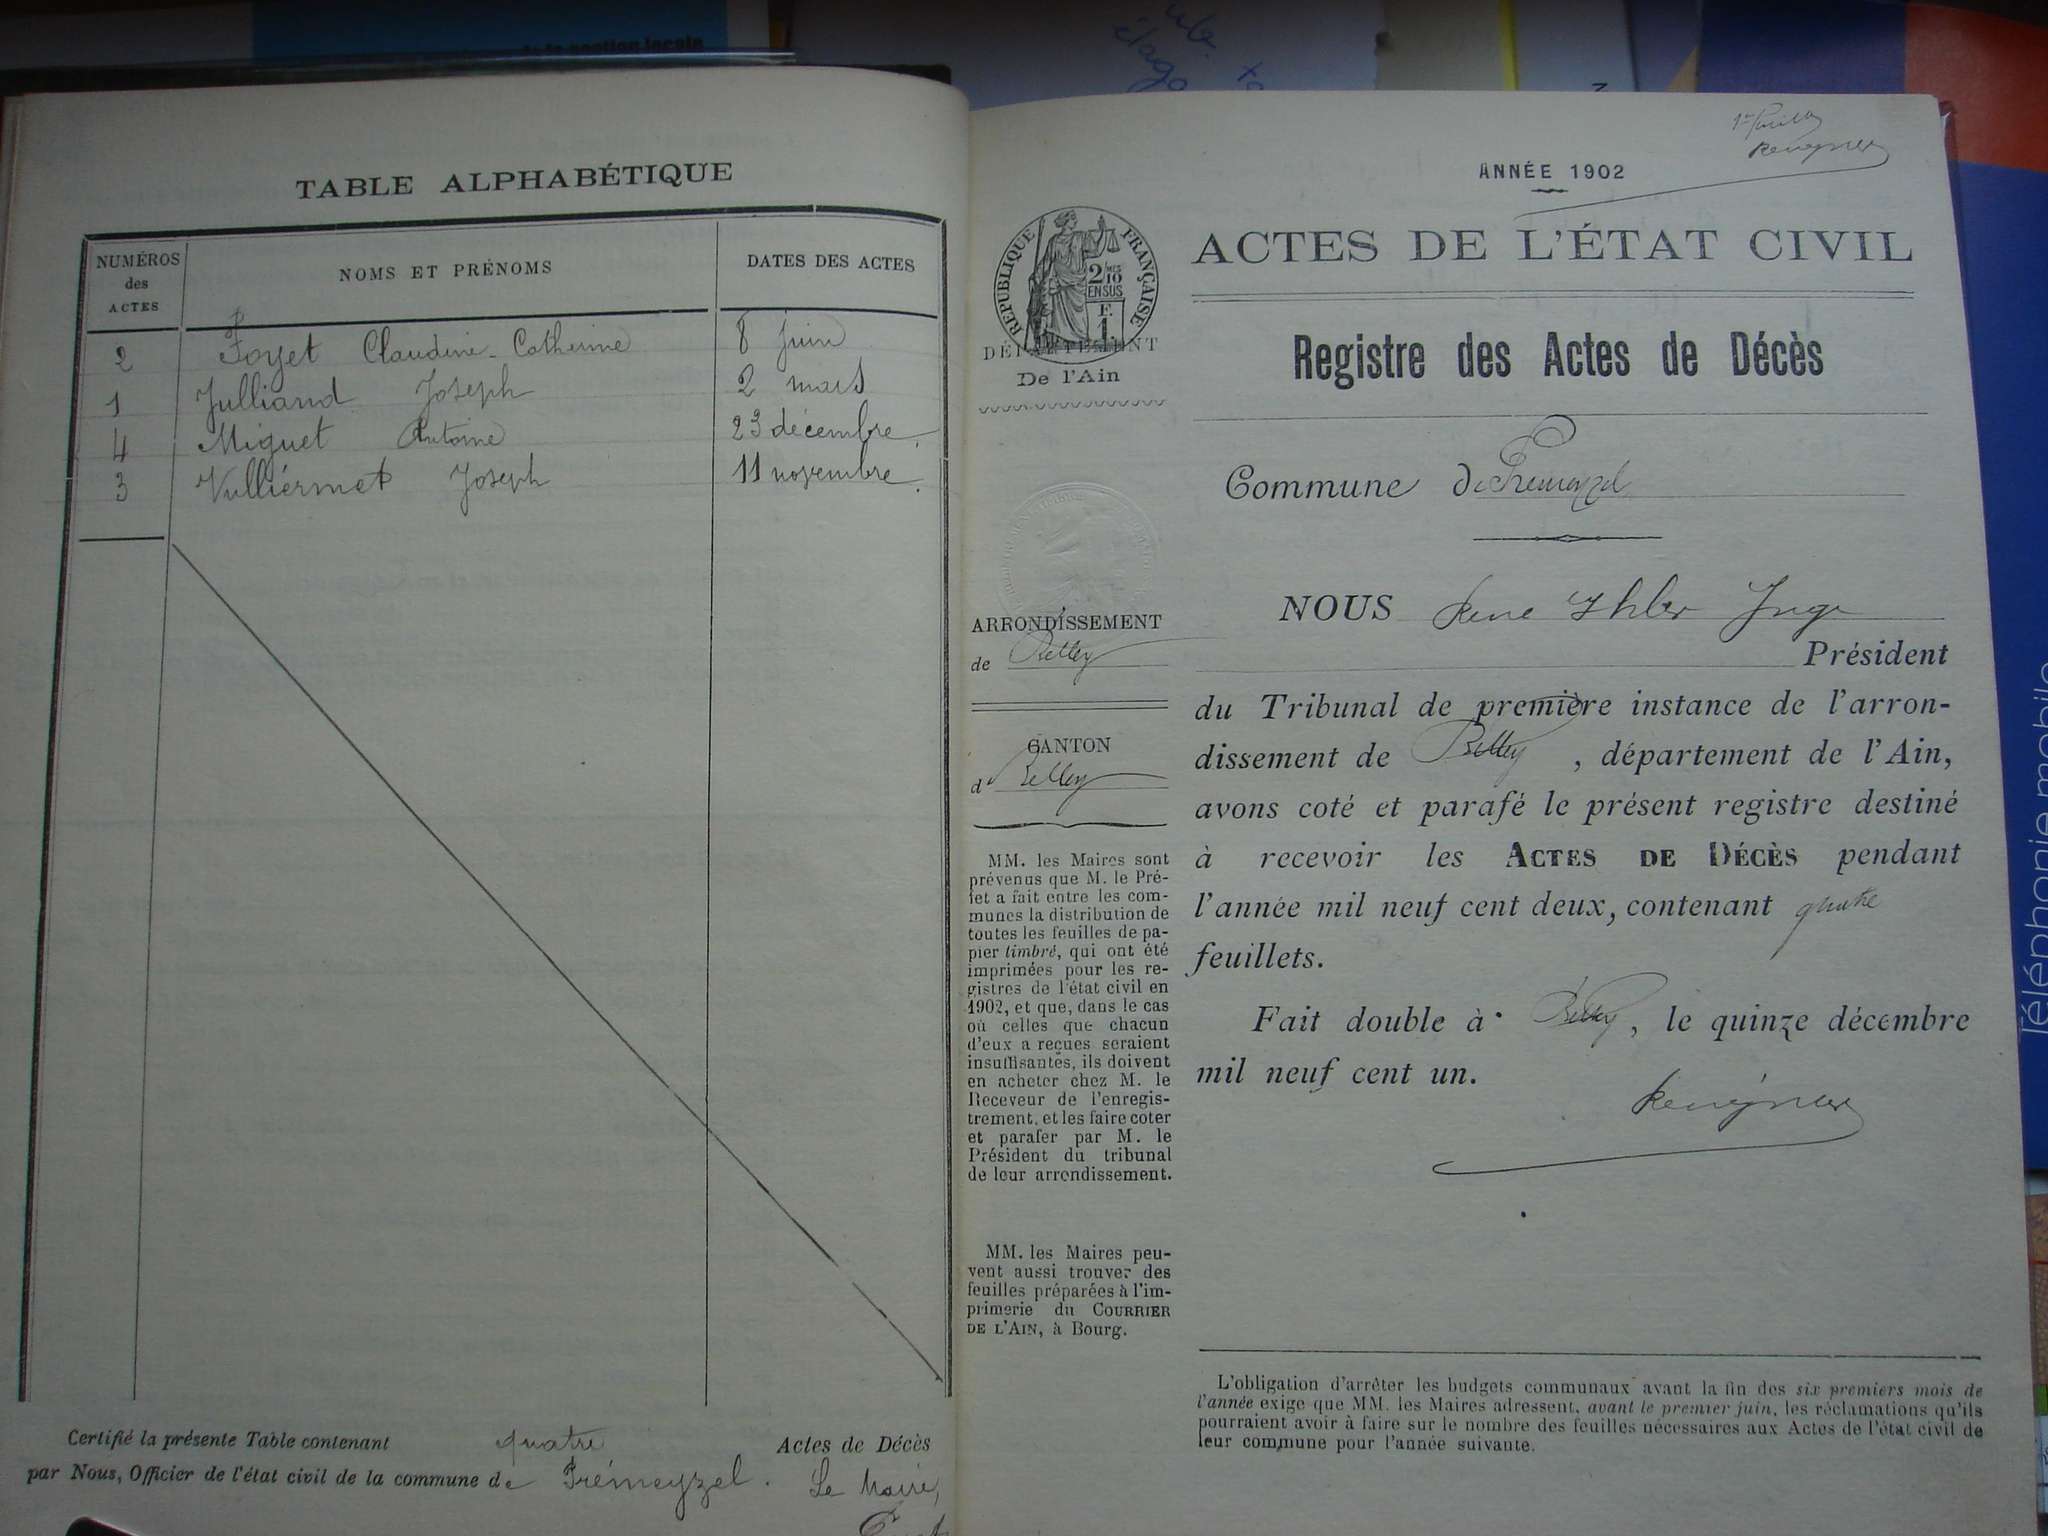 de la section locale
TABLE ALPHABÉTIQUE
NUMÉROS
des
ACTES
NOMS ET PRÉNOMS
DATES DES ACTES
2 Foyet Claudine-Catherine 8 juin
1 Julliand Joseph 2 mars
4 Miguet Antoine 23 décembre.
3 Vulliermet Joseph 11 novembre.
Certifié la présente Table contenant quatre Actes de Décès
par Nous, Officier de l'état civil de la commune de Prémeyzel. Le Maire,
ANNÉE 1902
RÉPUBLIQUE FRANÇAISE
2/10
EN SUS
F.
1
DÉPARTEMENT
De l'Ain
ARRONDISSEMENT
de Belley
CANTON
de Belley
MM. les Maires sont
prévenus que M. le Pré-
fet a fait entre les com-
munes la distribution de
toutes les feuilles de pa-
pier timbré, qui ont été
imprimées pour les re-
gistres de l'état civil en
1902, et que, dans le cas
où celles que chacun
d'eux a reçues seraient
insuffisantes, ils doivent
en acheter chez M. le
Receveur de l'enregis-
trement, et les faire coter
et parafer par M. le
Président du tribunal
de leur arrondissement.
MM. les Maires peu-
vent aussi trouver des
feuilles préparées à l'im-
primerie du COURRIER
DE L'AIN, à Bourg.
ACTES DE L'ÉTAT CIVIL
Registre des Actes de Décès
Commune de Prémeyzel
NOUS René Juge
Président
du Tribunal de première instance de l'arron-
dissement de Belley, département de l'Ain,
avons coté et parafé le présent registre destiné
à recevoir les ACTES DE DÉCÈS pendant
l'année mil neuf cent deux, contenant quatre
feuillets.
Fait double à Belley, le quinze décembre
mil neuf cent un.
L'obligation d'arrêter les budgets communaux avant la fin des six premiers mois de
l'année exige que MM. les Maires adressent, avant le premier juin, les réclamations qu'ils
pourraient avoir à faire sur le nombre des feuilles nécessaires aux Actes de l'état civil de
leur commune pour l'année suivante.
Téléphonie mobile